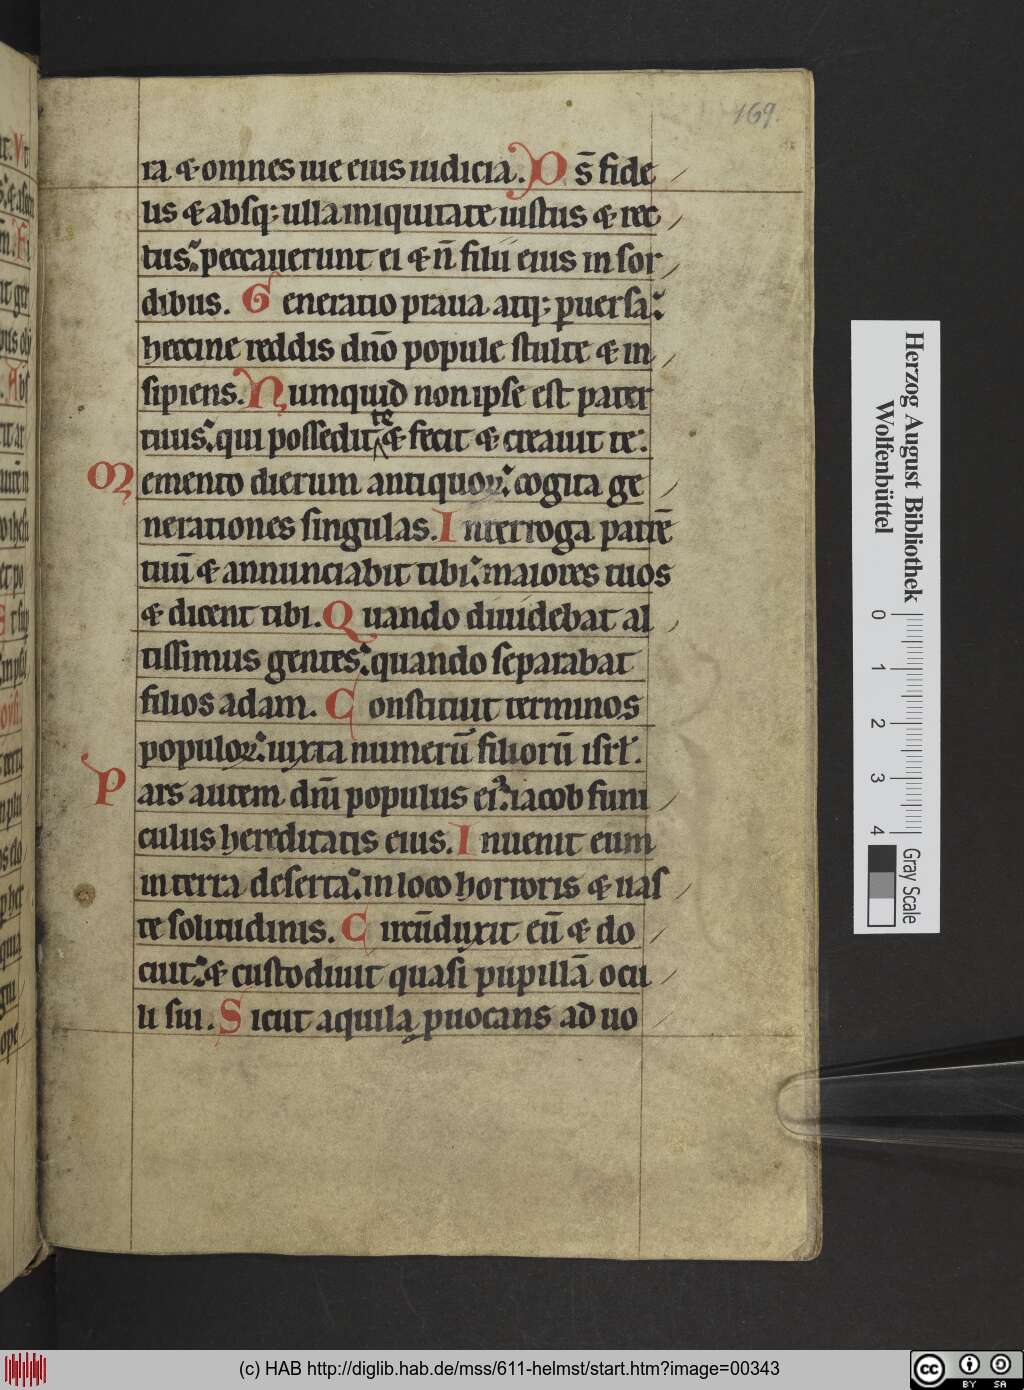 169.
ra & omnes uie eius iudicia. Ds̄ fide
lis & absq; ulla iniquitate iustus & rec
tus: peccauerunt ei & n̄ filii eius in sor
dibus. Generatio praua atq; puersa:
heccine reddis dn̄o popule stulte & in
sipiens. Numquid non ipse est pater
tuus: qui possedit te & fecit & creauit te:
Memento dierum antiquoꝝ: cogita ge
nerationes singulas. Interroga patrē
tuū & annunciabit tibi: maiores tuos
& dicent tibi. Quando diuidebat al
tissimus gentes: quando separabat
filios adam. Constituit terminos
populoꝝ: iuxta numerū filiorū isrł.
Pars autem dn̄i populus ei: iacob funi
culus hereditatis eius. Inuenit eum
in terra deserta: in loco horroris & uas
te solitudinis. Circūduxit eū & do
cuit: & custodiuit quasi pupillā ocu
li sui. Sicut aquila puocans ad uo
Herzog August Bibliothek
Wolfenbüttel
0 1 2 3 4
Gray Scale
(c) HAB http://diglib.hab.de/mss/611-helmst/start.htm?image=00343
cc BY SA